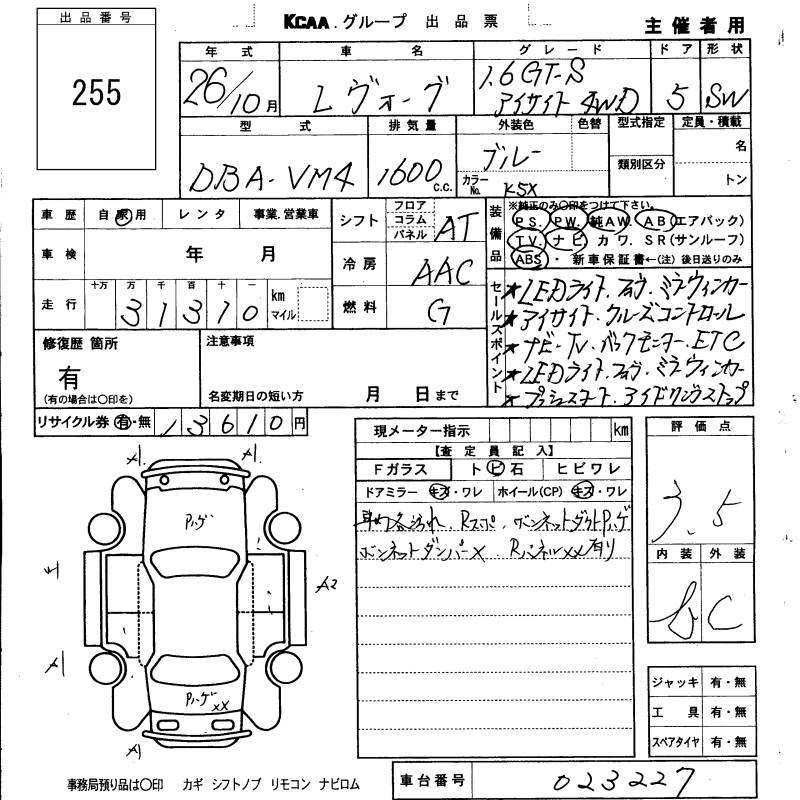 出品番号
255
KCAA グループ 出品票
主催者用
年式 車名 グレード ドア 形状
26/10月 レヴォーグ 1.6GT-S
アイサイト 4WD 5 SW
型式 排気量 外装色 色替 型式指定 定員・積載
DBA-VM4 1600 c.c. ブルー
カラーNo. K5X
類別区分
名
トン
車歴 自家用 レンタ 事業.営業車
車検 年 月
走行 十万 万 千 百 十 一
31310 km マイル
シフト フロア コラム パネル AT
冷房 AAC
燃料 G
装備品
※純正のみ〇印をつけて下さい。
PS. PW. 純AW. AB(エアバック)
TV. ナビ カワ. SR(サンルーフ)
ABS・ 新車保証書←(注)後日送りのみ
セールスポイント
★LEDライト.フォグ.ミラーウィンカー
★アイサイト.クルーズコントロール
★ナビ・TV.バックモニター.ETC
★LEDライト.フォグ.ミラーウィンカー
★プッシュスタート アイドリングストップ
修復歴 箇所
有
(有の場合は〇印を)
注意事項
名変期日の短い方 月 日まで
リサイクル券 有・無 13610円
現メーター指示 km
【査定員記入】
Fガラス トビ石 ヒビワレ
ドアミラー キズ・ワレ ホイール(CP) キズ・ワレ
Rスポ.ボンネットダクトPハゲ
ボンネットダンパーX Rパネルxx有り
評価点
3.5
内装 外装
C
A1 A1
Pハゲ
A2
A1
Pハゲ xx
A1
ジャッキ 有・無
工具 有・無
スペアタイヤ 有・無
事務局預り品は〇印 カギ シフトノブ リモコン ナビロム
車台番号 023227